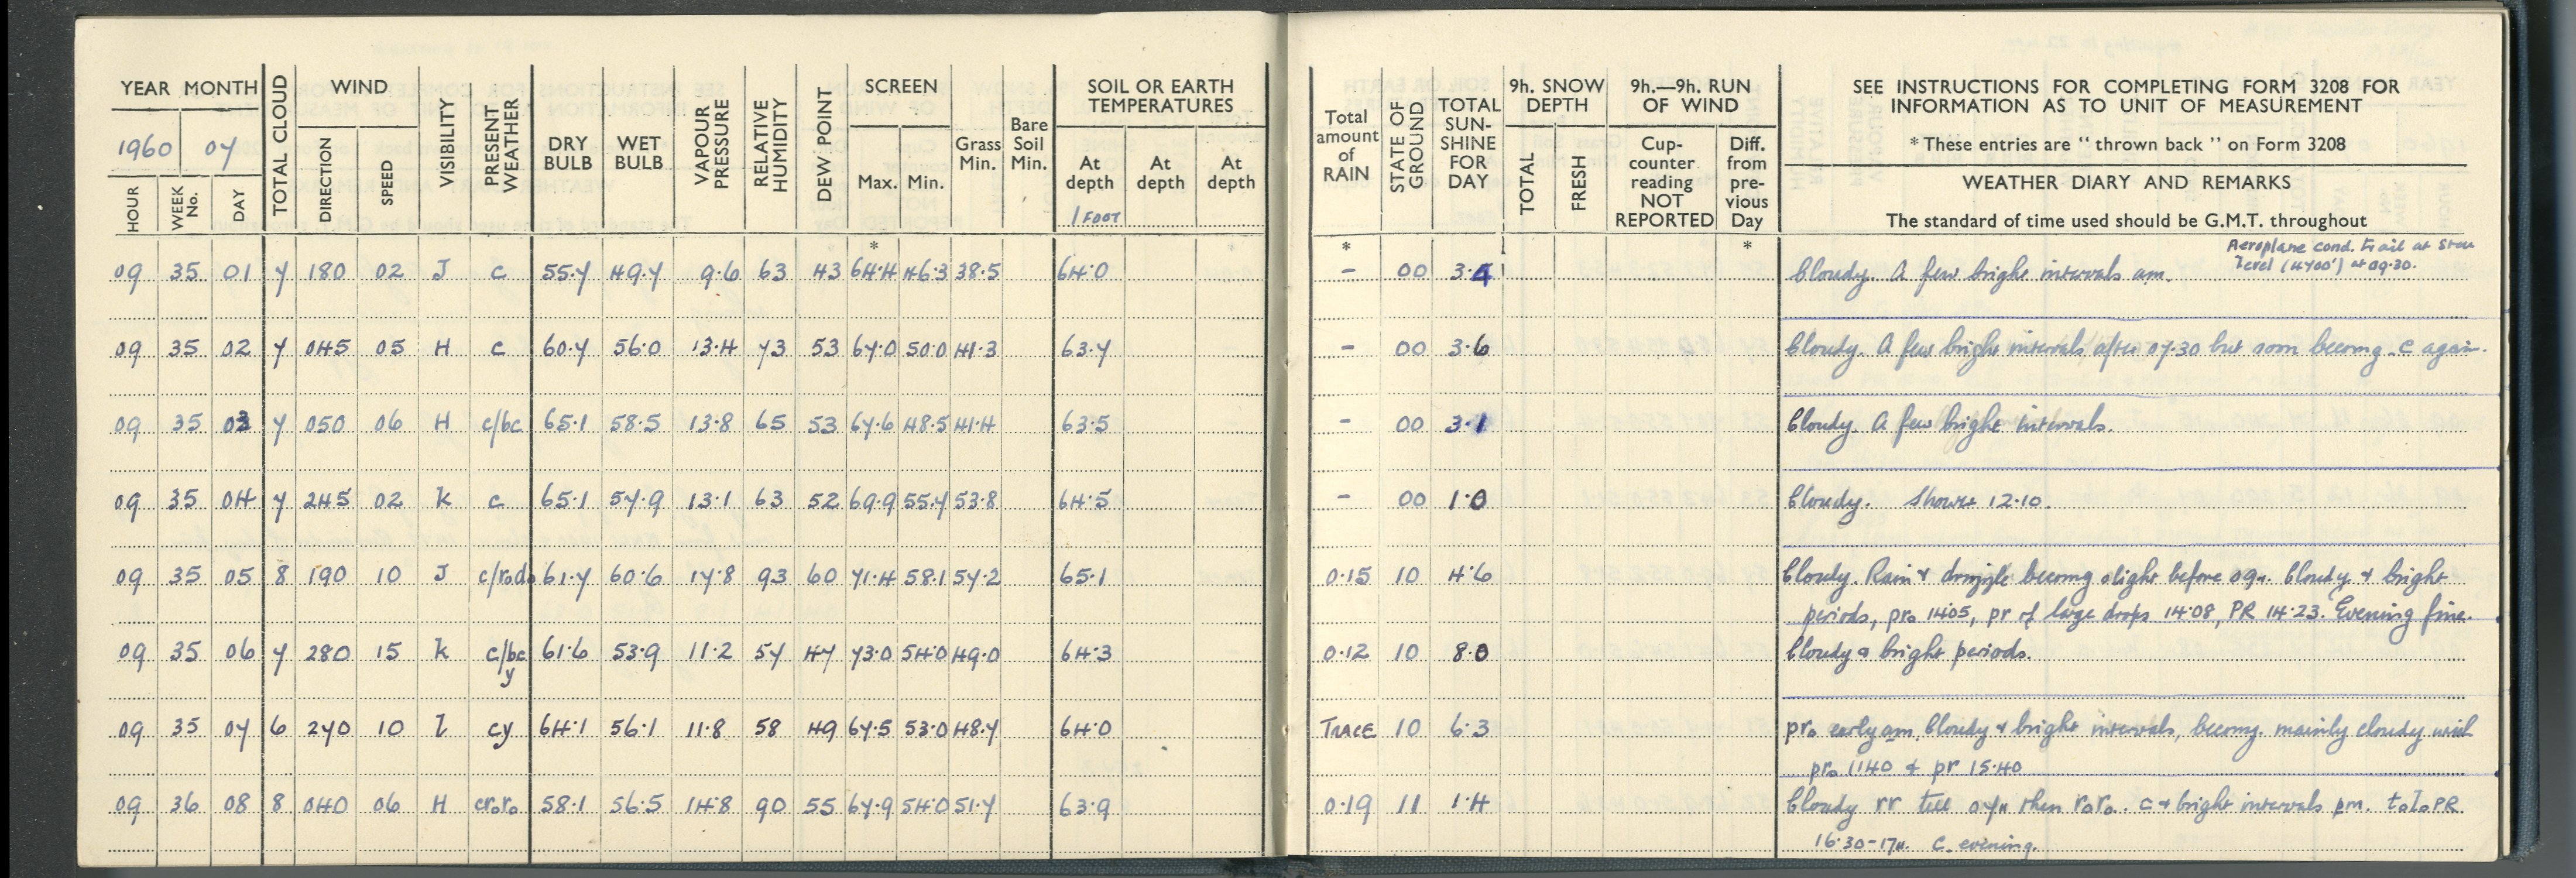 YEAR MONTH
1960 07
HOUR
WEEK No.
DAY
TOTAL CLOUD
WIND
DIRECTION
SPEED
VISIBILITY
PRESENT WEATHER
DRY BULB
WET BULB
VAPOUR PRESSURE
RELATIVE HUMIDITY
DEW POINT
SCREEN
Max. Min.
Grass Min.
Bare Soil Min.
SOIL OR EARTH TEMPERATURES
At depth
1 FOOT
At depth
At depth
Total amount of RAIN
STATE OF GROUND
TOTAL SUN-SHINE FOR DAY
9h. SNOW DEPTH
TOTAL
FRESH
9h.—9h. RUN OF WIND
Cup-counter reading NOT REPORTED
Diff. from pre-vious Day
SEE INSTRUCTIONS FOR COMPLETING FORM 3208 FOR
INFORMATION AS TO UNIT OF MEASUREMENT
* These entries are "thrown back" on Form 3208
WEATHER DIARY AND REMARKS
The standard of time used should be G.M.T. throughout
* * *
Aeroplane cond. trail at
level (4700') at 09.30.
09 35 01 7 180 02 J c 55.7 49.7 9.6 63 43 64.4 46.3 38.5 64.0 - 00 3.4 Cloudy. A few bright intervals am.
09 35 02 7 045 05 H c 60.7 56.0 13.4 73 53 67.0 50.0 41.3 63.7 - 00 3.6 Cloudy. A few bright intervals after 07.30 but soon becomg c again.
09 35 03 7 050 06 H c/bc 65.1 58.5 13.8 65 53 67.6 48.5 41.4 63.5 - 00 3.1 Cloudy. A few bright intervals.
09 35 04 7 245 02 k c 65.1 57.9 13.1 63 52 69.9 55.7 53.8 64.5 - 00 1.0 Cloudy. Shower 12.10.
09 35 05 8 190 10 J c/rodo 61.7 60.6 17.8 93 60 71.4 58.1 57.2 65.1 0.15 10 4.6 Cloudy. Rain & drizzle becomg slight before 09h. Cloudy & bright
periods, pro 1405, pr of large drops 14.08, PR 14.23. Evening fine.
09 35 06 7 280 15 k c/bc y 61.6 53.9 11.2 57 47 73.0 54.0 49.0 64.3 0.12 10 8.0 Cloudy & bright periods.
09 35 07 6 270 10 l cy 64.1 56.1 11.8 58 49 67.5 53.0 48.7 64.0 TRACE 10 6.3 pro early am. Cloudy & bright intervals, becomg. mainly cloudy with
pro 1140 & pr 15.40
09 36 08 8 040 06 H croro 58.1 56.5 14.8 90 55 67.9 54.0 51.7 63.9 0.19 11 1.4 Cloudy rr till 07h then roro. c & bright intervals pm. toloPR
16.30-17h. C. evening.